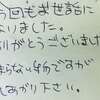 今回もお世話に
なりました。
ありがとうございま
つまらない物ですが
しあがり下さい。